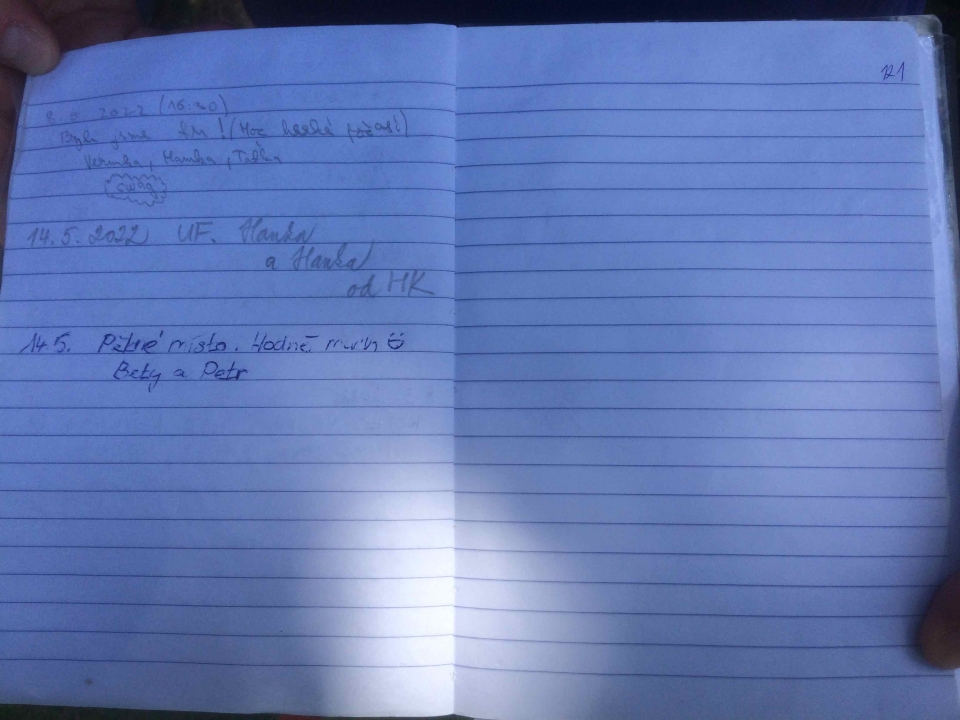 2022 (16:30)
Byli jsme tu! (Moc hezké počasí)
Verunka, Mamka, Taťka
SWAG
14.5.2022 UF. Hanka
a Hanka
od HK
14.5. Pěkné místo. Hodně
Bety a Petr
121